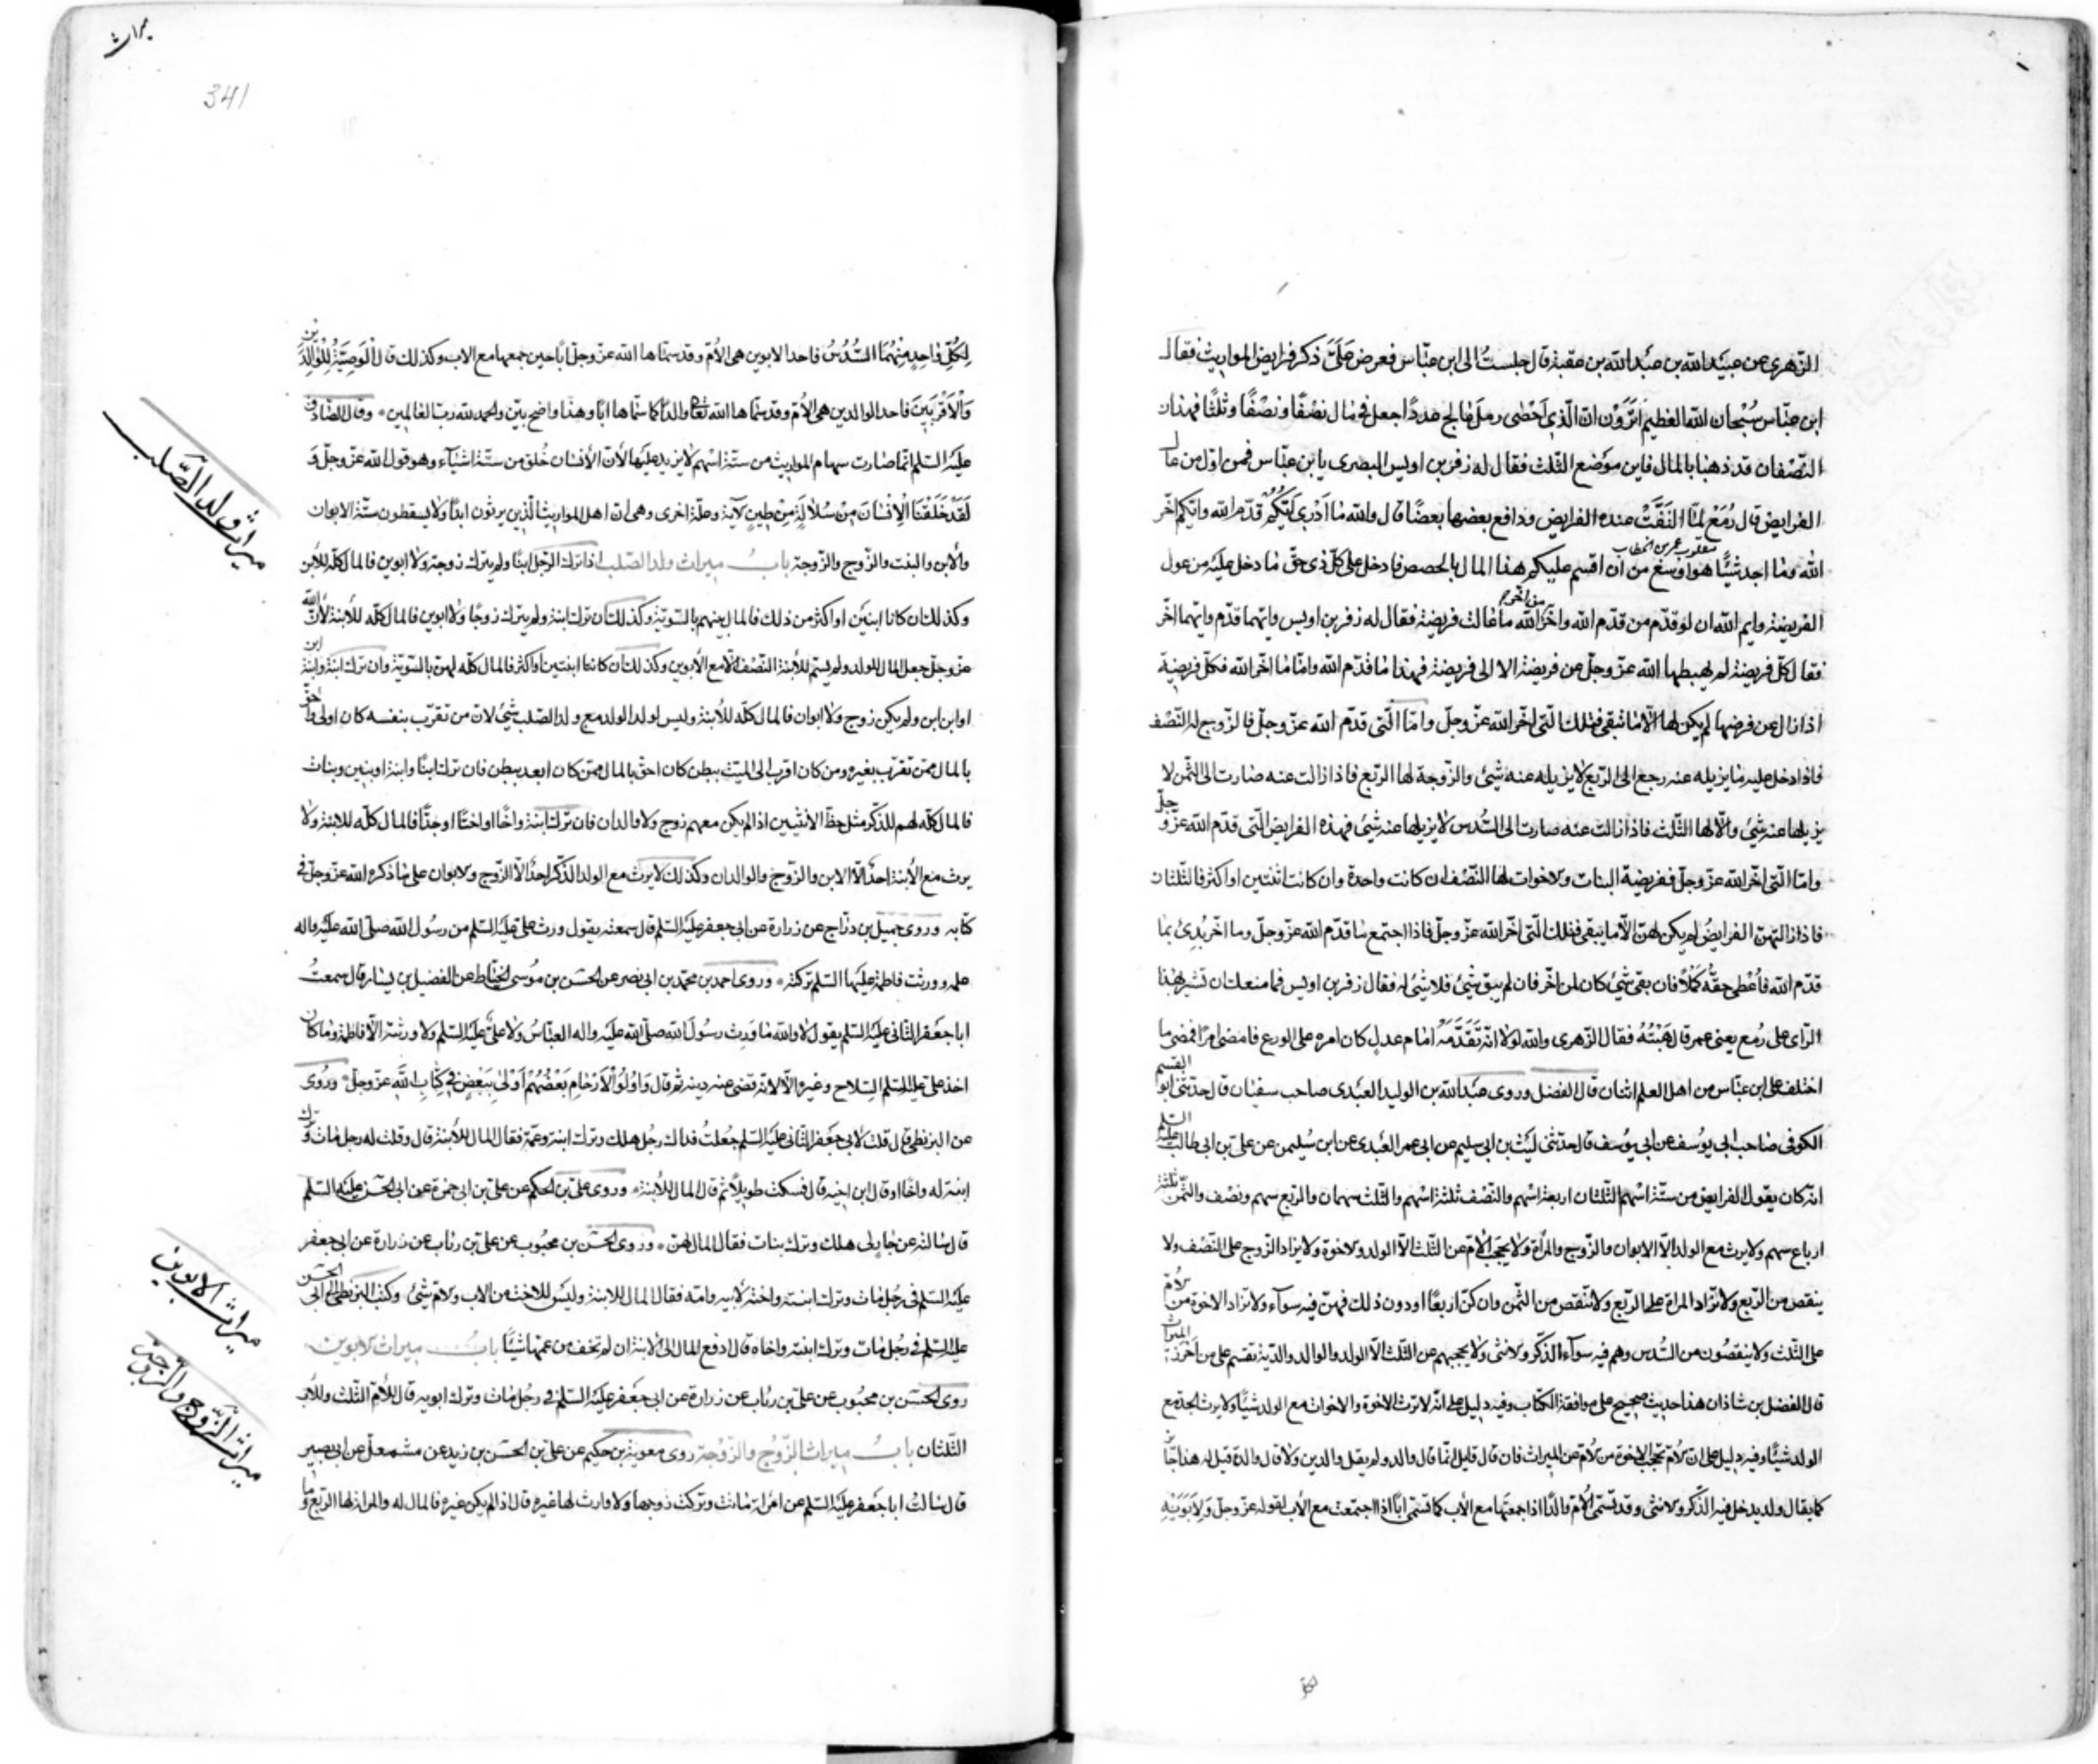 الزّهرى عن عبيد الله بن عبد الله بن عقبة قال جلستُ الى ابن عبّاس فعرض علَىَّ ذكر فرايض المواريث فقال
ابن عبّاس سُبْحان الله العظيم اترَوْن انّ الّذى اَحْصٰى رمل عٰالج عددًا جعل فى مٰال نصْفًا ونصْفًا وثلثًا فهذان
النّصْفان قد ذهبا بالمال فاين موْضع الثّلث فقال له زفر بن اويس البصرى يابن عبّاس فمن اوّل من عال
الفرايض قال رُمَعْ لمّا الْتَفَّتْ عنده الفرايض ودافع بعضها بعضًا قال والله مٰا اَدْرى اَيُّكُمْ قدّم الله وايّكم اخّر
مقلوب عمر بن الخطاب
الله ومٰا اجد شيْئًا هو اَوْسَعُ من ان اقسم عليكم هذا المال بالحصص فادخل على كلّ ذى حقّ مٰا دخل عليْه من عول
الفريضة وايم الله ان لو قدّم من قدّم الله واخّر من اخّر الله مٰا عٰالت فريضة فقال له زفر بن اويس وايّهما قدّم وايّهما اخّر
فقال كلّ فريضة لم يهبطها الله عزّ وجلّ عن فريضة الا الى فريضة فهذا مٰا قدّم الله وامّا مٰا اخّر الله فكلّ فريضة
اذا زال عن فرضها لم يكن لها الّا مٰا تبقى فتلك الّتى اخّر الله عزّ وجلّ وامّا الّتى قدّم الله عزّ وجلّ فالزّوج له النّصْف
فاذا دخل عليه مٰا يزيله عنه رجع الى الرّبع لا يزيله عنه شئ والزّوجة لها الرّبع فاذا زالت عنه صٰارت الى الثّمن لا
يزيلها عنه شئ والامّ لها الثّلث فاذا زالت عنه صارت الى السُّدس لا يزيلها عنه شئ فهذه الفرايض الّتى قدّم الله عزّ وجلّ
وامّا الّتى اخّر الله عزّ وجلّ ففريضة البنات والاخوات لها النّصْف ان كانت واحدة وان كانت اثنتين او اكثر فالثّلثان
فاذا ازالتهنّ الفرايضُ لم يكن لهنّ الّا ما يبقى فتلك الّتى اخّر الله عزّ وجلّ فاذا اجتمع مٰا قدّم الله عزّ وجلّ وما اخّر بُدِئَ بما
قدّم الله فاُعْطى حقّهُ كَمَلًا فان بقى شئ كان لمن اخّر فان لم يبق شئ فلا شئ له فقال زفر بن اويس فما منعك ان تشير بهٰذا
الرّاى على رُمع يعنى عمر قال هَبْتُهُ فقال الزّهرى والله لولا انّه تقدَّمَهُ امٰام عدلٍ كان امره على الورع فامضى امرًا فمضى ما
اختلف على ابن عبّاس من اهل العلم اثنان قال الفضل وروى عبْد الله بن الوليد العبْدى صاحب سفيٰان قال حدّثنى ابو القسم
الكوفى صٰاحب ابى يوسُف عن ابى يوسُف قال حدّثنى ليْث بن ابى سليم عن ابى عمر العبْدى عن ابن سُليمن عن علىّ بن ابى طالب عليه السّلم
انّه كان يقول الفرايض من ستّة اسْهم الثّلثان اربعة اسْهم والنّصْف ثلثة اسْهم والثّلث سهمان والرّبع سهم ونصْف والثّمن ثلثة
ارباع سهم ولا يرث مع الولد الّا الابوان والزّوج والمرأة ولا يحجب الامّ عن الثّلث الّا الولد والاخوة ولا يزاد الزّوج على النّصْف ولا
ينقص من الرّبع ولا تزاد المراة على الرّبع ولا تنْقص من الثّمن وان كنّ اربعًا او دون ذلك فهنّ فيه سوآء ولا تزاد الاخوة من الامّ
على الثّلث ولا ينقصُون من السُّدس وهم فيه سوآء الذّكر والانثى ولا يحجبهم عن الثّلث الّا الولد والوالد والدّية تقسم على من اَحْرَزَ الميراث
قال الفضل بن شاذان هذا حديث صحيح على موافقة الكتاب وفيه دليل على انّه لا ترث الاخوة والاخوات مع الولد شيئًا ولا يرث الجدّ مع
الولد شيئًا وفيه دليل على انّ الامّ تحجب الاخوة من الامّ عن الميراث فان قال قايل انّما قال والد ولم يقل والدين ولا قال والدة قيل له هذا جٰائز
كما يقال ولد يدخل فيه الذّكر والانثى وقد تسمّى الامّ والدًا اذا جمعتها مع الأب كما تسمّى ابًا اذا اجتمعت مع الأب لقوله عزّ وجلّ وَلِاَبَوَيْهِ
341
لِكُلِّ وٰاحِدٍ مِنْهُمَا السُّدُسُ فاحد الابوين هى الاُمّ وقد سمّاها الله عزّ وجلّ ابًا حين جمعها مع الاب وكذلك قال اَلْوَصِيَّةُ لِلْوٰالِدَيْنِ
وَالْاَقْرَبِينَ فاحد الوالدين هى الاُمّ وقد سمّاها الله تعالى والدًا كما سمّاها ابًا وهذا واضح بيّن والحمد لله ربّ العٰالمين وقال الصّٰادق
عليْه السّلم انّما صٰارت سهام المواريث من ستّة اسْهم لا يزيد عليْها لانّ الأنسٰان خُلق من ستّة اشيٰآء وهو قول الله عزّ وجلّ وَ
لَقَدْ خَلَقْنَا الْاِنْسٰانَ مِنْ سُلٰالَةٍ مِنْ طِينٍ لآية وعلّة اخرى وهى انّ اهل المواريث الّذين يرثون ابدًا ولا يسقطون ستّة الابوان
والأبن والبنت والزّوج والزّوجة بابُ ميراث ولد الصّلب اذا ترك الرّجل ابنًا ولم يترك زوجة ولا ابوين فالمال كلّه للأبن
وكذلك ان كانا ابنَين او اكثر من ذلك فالمال بينهم بالسّويّة وكذلك ان ترك ابنة ولم يترك زوجًا ولا ابوين فالمال كلّه للأبنة لأنّ الله
عزّ وجلّ جعل المال للولد ولم يسمّ للأبنة النّصْف الّا مع الأبوين وكذلك ان كانتا ابنتين او اكثر فالمال كلّه لهنّ بالسّويّة وان ترك ابنة وابنة ابن
او ابن ابن ولم يكن زوج ولا ابوان فالمال كلّه للأبنة وليس لولد الولد مع ولد الصّلب شئ لانّ من تقرّب بنفسه كان اولى واحقّ
بالمال ممّن تقرّب بغيره ومن كان اقرب الى الميّت ببطن كان احقّ بالمال ممّن كان ابعد ببطن فان ترك ابنًا وابنة او بنين وبنات
فالمال كلّه لهم للذّكر مثل حظّ الانثيين اذا لم يكن معهم زوج ولا والدان فان ترك ابنة واخًا او اختًا او جدًّا فالمال كلّه للابنة ولا
يرث مع الأبنة احدٌ الّا الابن والزّوج والوالدان وكذلك لا يرث مع الولد الذّكر احدٌ الّا الزّوج والابوان على مٰا ذكره الله عزّ وجلّ فى
كتابه وروى جميل بن درّاج عن زرارة عن ابى جعفر عليْه السّلم قال سمعته يقول ورث علىّ عليْه السّلم من رسُول الله صلّى الله عليْه واله
علمه وورثت فاطمة عليْها السّلم تركته وروى احمد بن محمّد بن ابى نصر عن الحسَن بن مُوسى الخيّاط عن الفضيل بن يسٰار قال سمعتُ
ابا جعفر الثّانى عليْه السّلم يقول لا والله مٰا وَرِث رسُولَ الله صلّى الله عليْه واله العبّاسُ ولا علىٌّ عليْه السّلم ولا ورثته الّا فاطمة ومٰا كان
اخذ علىّ عليْه السّلم السّلاح وغيره الّا لانّه قضى عنه دينه ثمّ قال وَاُولُوا الْاَرْحٰامِ بَعْضُهُمْ اَوْلىٰ بِبَعْضٍ فِى كِتٰابِ اللهِ عزّ وجلّ وروى
عن البزنطى قال قلتُ لابى جعْفر الثّانى عليْه السّلم جُعلتُ فداك رجُل هلك وترك ابنته وعمّه فقال المال للأبنة قال وقلت له رجل مٰات وترك
ابنته له واخًا او قال ابن اخيه قال فسكت طويلًا ثمّ قال المال للأبنة وروى علىّ بن الحكم عن علىّ بن ابى حمزة عن ابى الحسَن عليْه السّلم
قال سٰالته عن جٰارٍ لى هلك وترك بنات فقال المال لهنّ وروى الحسَن بن محبُوب عن علىّ بن رئٰاب عن زرارة عن ابى جعفر
عليْه السّلم فى رجُل مٰات وترك ابنته واخته لابيه وامّه فقال المال للابنة وليْس للاخت من الاب والامّ شئ وكتب البزنطى الى ابى الحسَن
عليْه السّلم فى رجُل مٰات وترك ابنته واخاه قال ادفع المال الى الأبنة ان لم تخف من عمّها شيْئًا بابُ ميراث الابوين
روى الحسَن بن محبُوب عن علىّ بن رئٰاب عن زرارة عن ابى جعْفر عليْه السّلم فى رجُل مٰات وترك ابويه قال للأمّ الثّلث وللأب
الثّلثان بابُ ميراث الزّوْج والزّوْجة روى معوية بن حكيم عن علىّ بن الحسَن بن زيد عن مشمعل عن ابى بصير
قال سٰالتُ ابا جَعفر عليْه السّلم عن امرأة مٰاتت وتركت زوجها ولا وارث لها غيره قال اذا لم يكن غيره فالمال له والمراة لها الرّبع وما
ميراث ولد الصّلب
ميراث الابوين
ميراث الزّوج والزّوجة